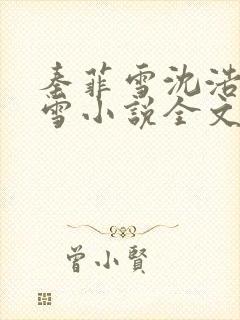 秦菲雪沈浩
雪小说全文
曾小賢